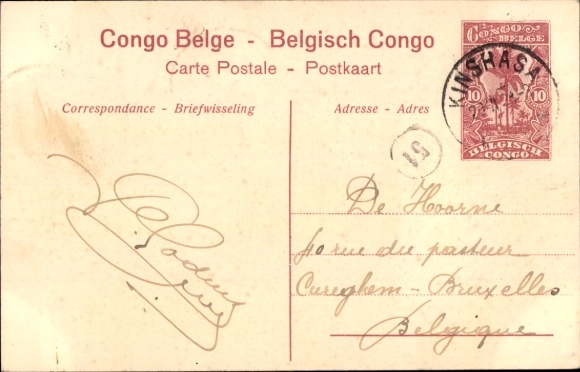 Congo Belge - Belgisch Congo
Carte Postale - Postkaart
Correspondance - Briefwisseling
Adresse - Adres
CONGO
BELGE
10 10
BELGISCH
CONGO
KINSHASA
51
De Hoorne
40 rue du pasteur
Cureghem - Bruxelles
Belgique